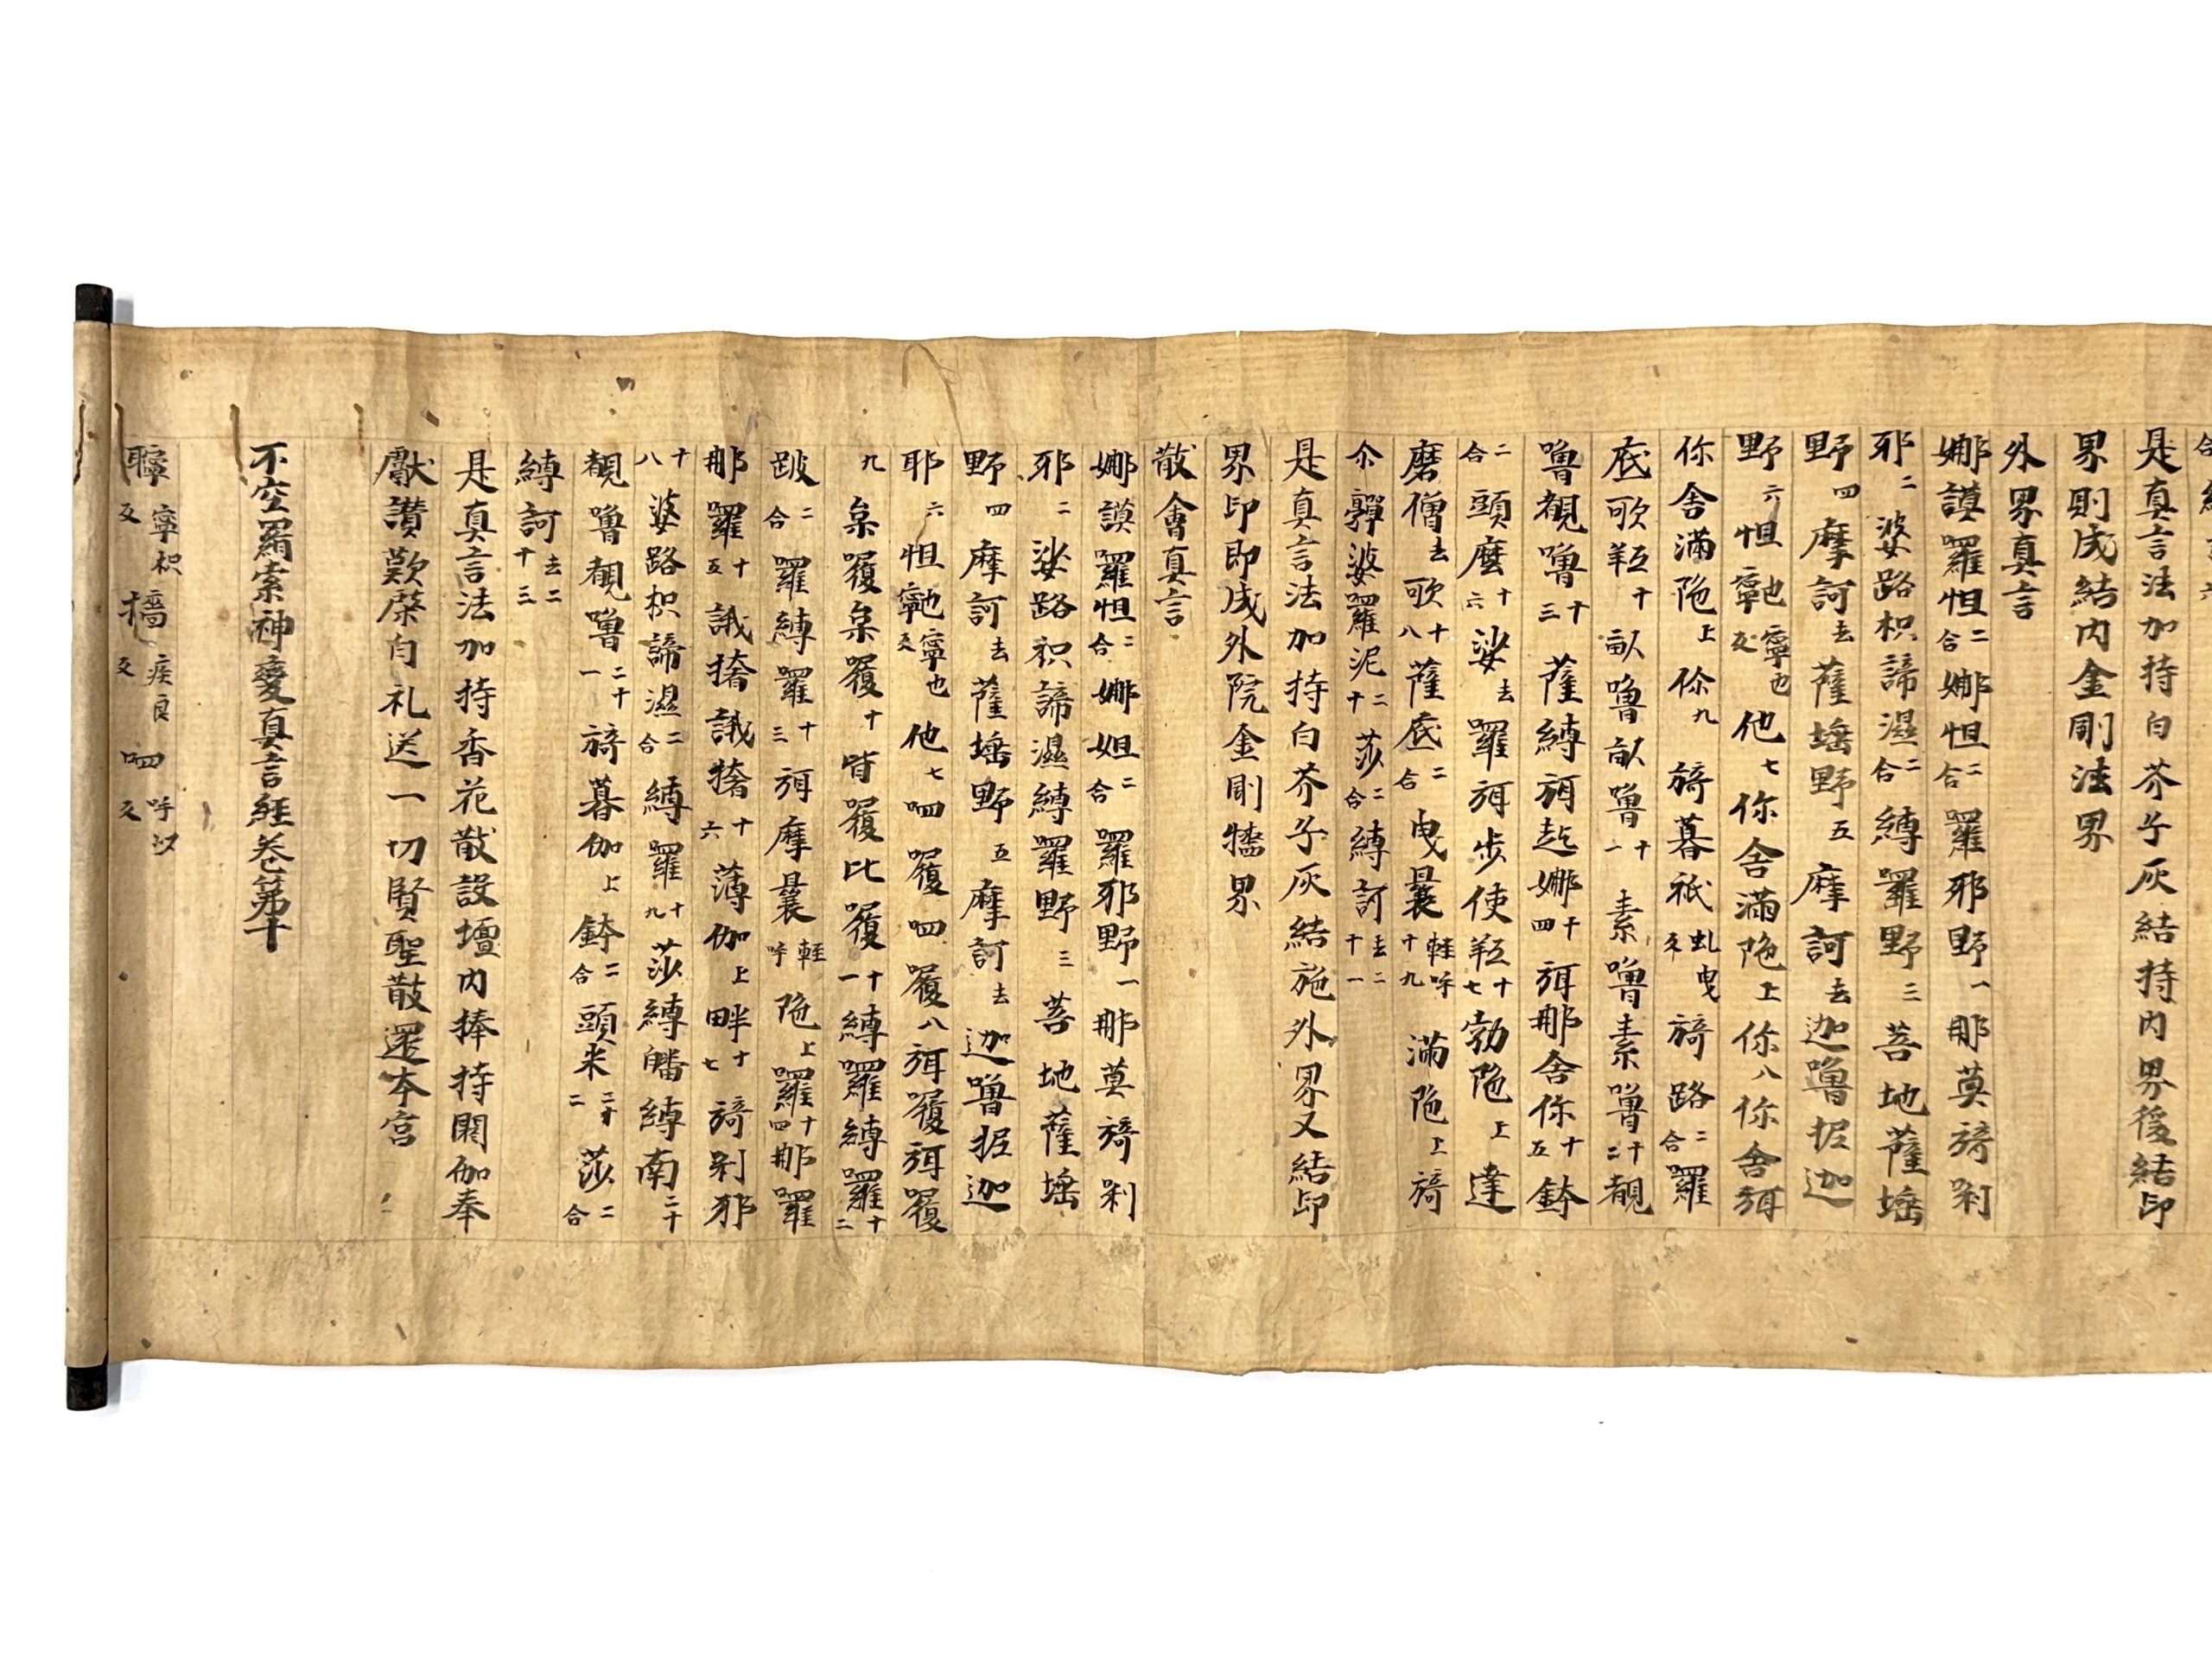 是真言法加持白芥子灰結持內界後結印
界則成結內金剛法界
外界真言
娜謨羅怛二合娜怛二合羅邪野一那莫旖㓨
邪二婆路枳諦濕二合縛羅野三菩地薩埵
野四摩訶去薩埵野五摩訶去迦嚕抳迦
野六怛寧也反他七你舍滿陁上你八你舍弭
你舍滿陁上你九旖暮祇虬曳反旖路二合羅
底歌羝十畝嚕畝嚕十一素嚕素嚕十二覩
嚕覩嚕十三薩縛弭訖娜十四弭那舍你十五鉢
二合頭麼十六娑去羅弭步使羝十七勃陁上達
磨僧去歌十八薩底二合曳曩輕呼十九滿陁上旖
尒嚲婆羅泥二十莎二合縛訶去二十一
是真言法加持白芥子灰結施外界又結印
界印即成外院金剛牆界
散會真言
娜謨羅怛二合娜怛二合羅邪野一那莫旖㓨
邪二婆路枳諦濕縛羅野三菩地薩埵
野四摩訶去薩埵野五摩訶去迦嚕抳迦
耶六怛寧也反他七呬履呬履八弭履弭履
九枲履枲履十背履比履十一縛羅縛羅十二
跛二合羅縛羅十三弭摩曩輕呼陁上羅十四那羅
那羅十五誐撦誐撦十六薄伽上畔十七旖㓨邪
十八婆路枳諦濕二合縛羅十九莎縛皤縛南二十
覩嚕覩嚕二十一旖暮伽上鉢二合頭米二十二莎二合
縛訶去二十三
是真言法加持香花散設壇內捧持閼伽奉
獻讚歎啓白礼送一切賢聖散還本宮
不空羂索神變真言經卷第十
聹寧枳反 檣疾良反 呬呼以反